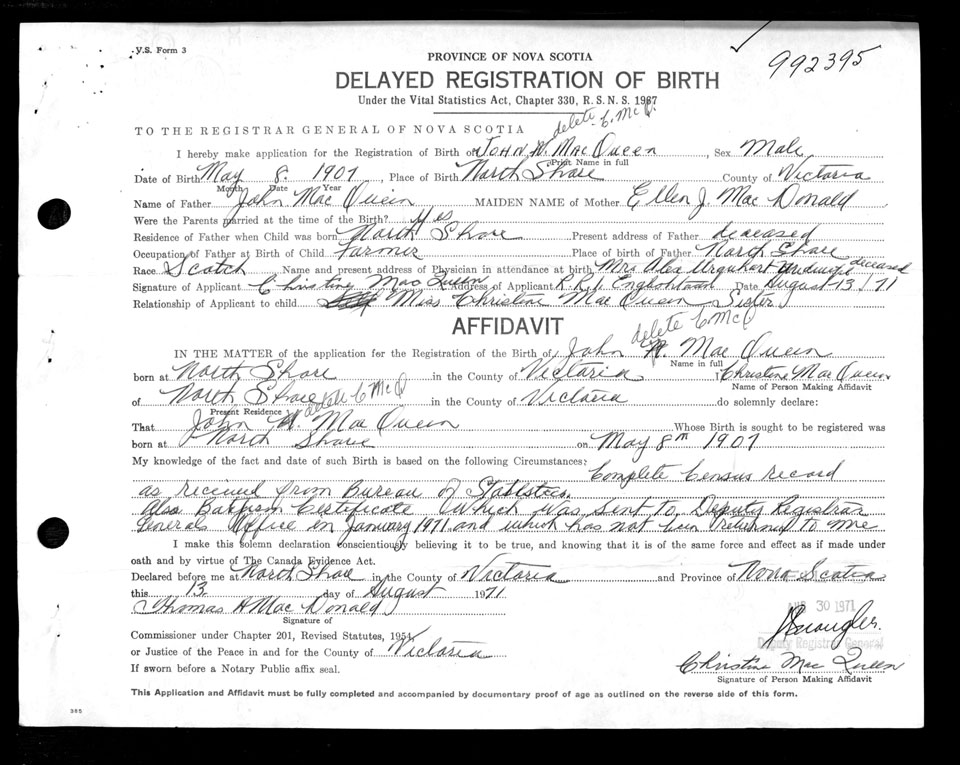 V.S. Form 3
992395
PROVINCE OF NOVA SCOTIA
DELAYED REGISTRATION OF BIRTH
Under the Vital Statistics Act, Chapter 330, R. S. N. S. 1967
delete C. McQ.
TO THE REGISTRAR GENERAL OF NOVA SCOTIA
I hereby make application for the Registration of Birth of JOHN W. MAC QUEEN, Sex Male
Print Name in full
Date of Birth May 8. 1907, Place of Birth North Shore County of Victoria
Month Date Year
Name of Father John Mac Queen MAIDEN NAME of Mother Ellen J. Mac Donald
Were the Parents married at the time of the Birth? Yes
Residence of Father when Child was born North Shore Present address of Father deceased
Occupation of Father at Birth of Child Farmer Place of birth of Father North Shore
Race Scotch Name and present address of Physician in attendance at birth Mrs Alex Urquhart Midwife deceased
Signature of Applicant Christine Mac Queen Address of Applicant R.R.1 Englishtown Date August 13/71
Relationship of Applicant to child Miss Christine Mac Queen Sister
AFFIDAVIT
delete C. McQ
IN THE MATTER of the application for the Registration of the Birth of John W. Mac Queen
Name in full
born at North Shore in the County of Victoria I Christine Mac Queen
Name of Person Making Affidavit
of North Shore in the County of Victoria do solemnly declare:
Present Residence delete C McQ
That John W. Mac Queen Whose Birth is sought to be registered was
born at North Shore on May 8th 1907
My knowledge of the fact and date of such Birth is based on the following Circumstances: Complete Census record
as received from Bureau of Statistics.
Also Baptism Certificate Which was sent to Deputy Registrar
Generals Office in January 1971 and which has not been returned to me
I make this solemn declaration conscientiously believing it to be true, and knowing that it is of the same force and effect as if made under
oath and by virtue of The Canada Evidence Act.
Declared before me at North Shore in the County of Victoria and Province of Nova Scotia
this 13 day of August 1971
Thomas A Mac Donald
Signature of
AUG 30 1971
Commissioner under Chapter 201, Revised Statutes, 1954,
Deputy Registrar General
or Justice of the Peace in and for the County of Victoria
If sworn before a Notary Public affix seal.
Christine Mac Queen
Signature of Person Making Affidavit
This Application and Affidavit must be fully completed and accompanied by documentary proof of age as outlined on the reverse side of this form.
385